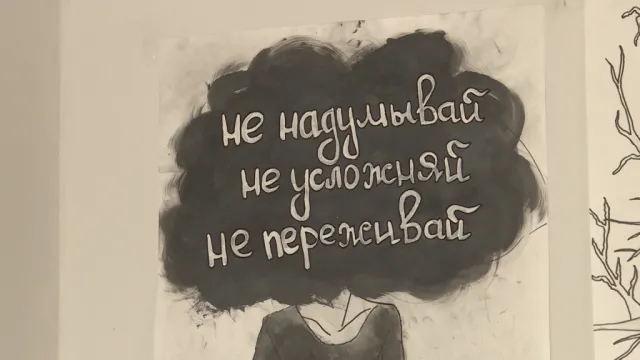 не надумывай
не усложняй
не переживай